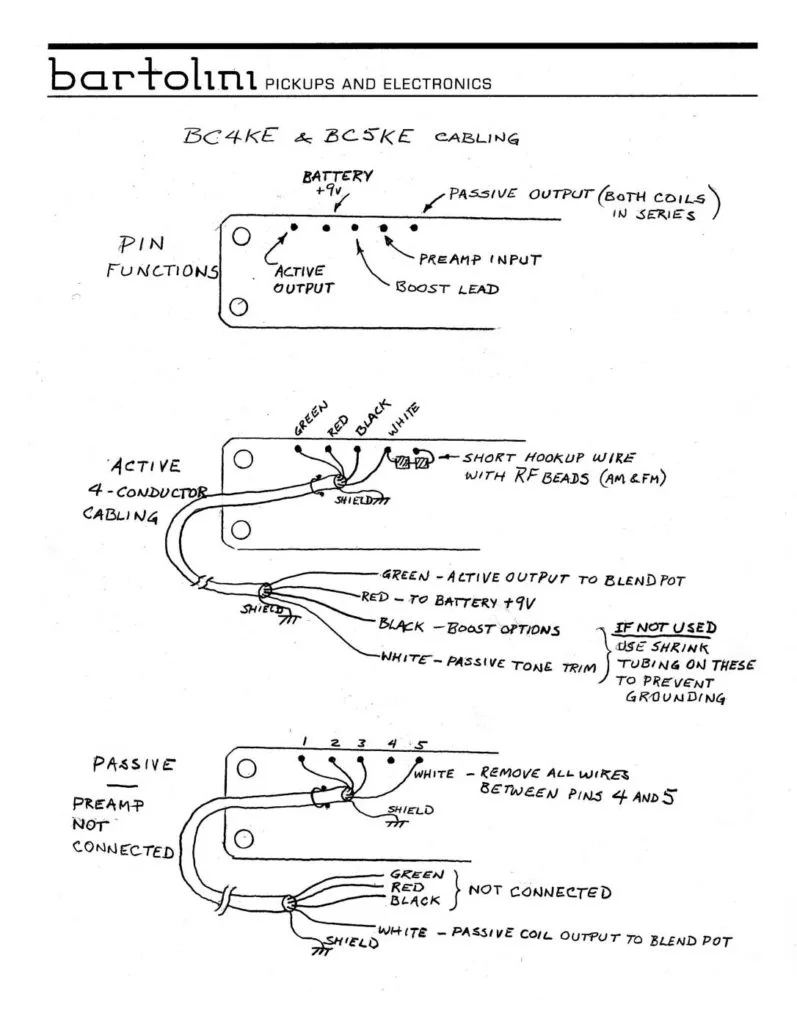 bartolini PICKUPS AND ELECTRONICS
BC4KE & BC5KE CABLING
BATTERY
+9V
PASSIVE OUTPUT (BOTH COILS
IN SERIES)
PIN
FUNCTIONS
ACTIVE
OUTPUT
PREAMP INPUT
BOOST LEAD
GREEN
RED
BLACK
WHITE
SHORT HOOKUP WIRE
WITH RF BEADS (AM & FM)
ACTIVE
4-CONDUCTOR
CABLING
SHIELD
GREEN - ACTIVE OUTPUT TO BLEND POT
RED - TO BATTERY +9V
SHIELD
BLACK - BOOST OPTIONS
WHITE - PASSIVE TONE TRIM
IF NOT USED
USE SHRINK
TUBING ON THESE
TO PREVENT
GROUNDING
1 2 3 4 5
PASSIVE
—
PREAMP
NOT
CONNECTED
WHITE - REMOVE ALL WIRES
BETWEEN PINS 4 AND 5
SHIELD
GREEN
RED
BLACK
NOT CONNECTED
WHITE - PASSIVE COIL OUTPUT TO BLEND POT
SHIELD